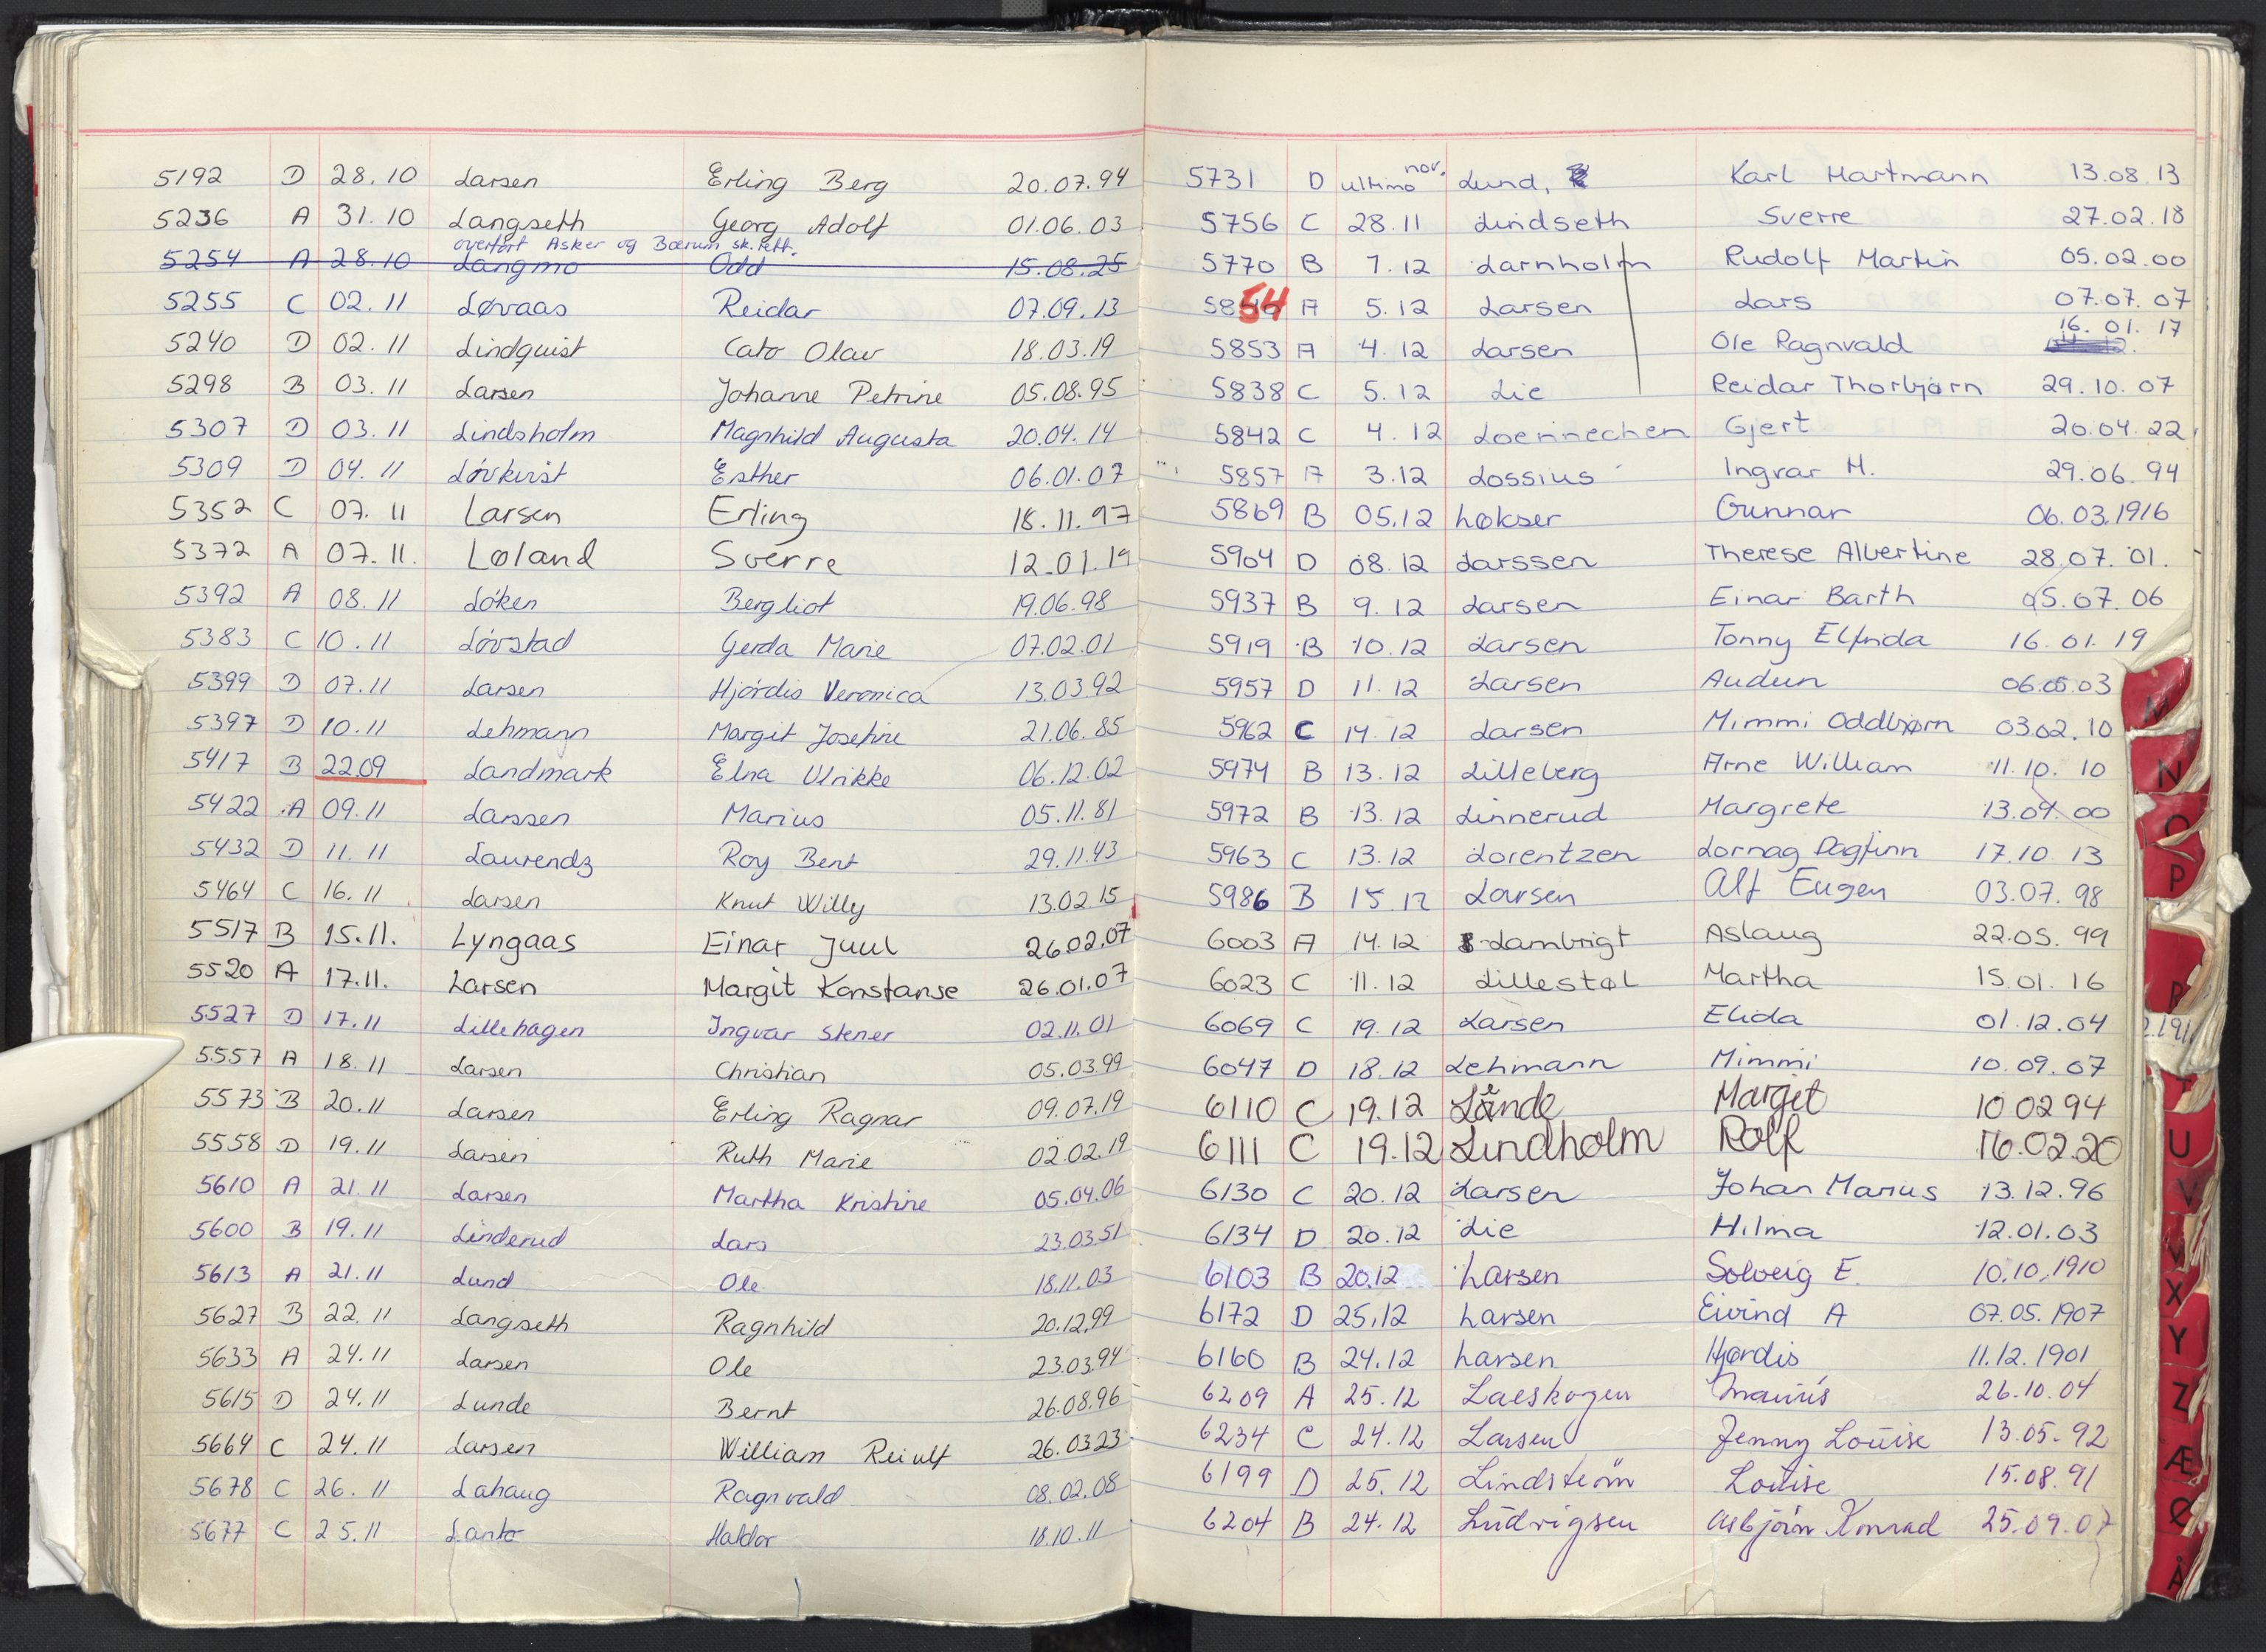 5192 D 28.10 Larsen Erling Berg 20.07.94
5236 A 31.10 Langseth Georg Adolf 01.06.03
overført Asker og Bærum sk.rett.
5254 A 28.10 Langmo Odd 15.08.25
5255 C 02.11 Løvaas Reidar 07.09.13
5240 D 02.11 Lindquist Cato Olav 18.03.19
5298 B 03.11 Larsen Johanne Petrine 05.08.95
5307 D 03.11 Lindsholm Magnhild Augusta 20.04.14
5309 D 04.11 Lövkvist Esther 06.01.07
5352 C 07.11 Larsen Erling 18.11.97
5372 A 07.11. Løland Sverre 12.01.19
5392 A 08.11 Löken Bergliot 19.06.98
5383 C 10.11 Lövstad Gerda Marie 07.02.01
5399 D 07.11 Larsen Hjördis Veronica 13.03.92
5397 D 10.11 Lehmann Margit Josefine 21.06.85
5417 B 22.09 Landmark Elna Ulrikke 06.12.02
5422 A 09.11 Larssen Marius 05.11.81
5432 D 11.11 Laurendz Roy Bent 29.11.43
5464 C 16.11 Larsen Knut Willy 13.02.15
5517 B 15.11. Lyngaas Einar Juul 26.02.07
5520 A 17.11. Larsen Margit Konstanse 26.01.07
5527 D 17.11 Lillehagen Ingvar Stener 02.11.01
5557 A 18.11 Larsen Christian 05.03.99
5573 B 20.11 Larsen Erling Ragnar 09.07.19
5558 D 19.11 Larsen Ruth Marie 02.02.19
5610 A 21.11 Larsen Martha Kristine 05.04.06
5600 B 19.11 Linderud Lars 23.03.51
5613 A 21.11 Lund Ole 18.11.03
5627 B 22.11 Langseth Ragnhild 20.12.99
5633 A 24.11 Larsen Ole 23.03.94
5615 D 24.11 Lunde Bernt 26.08.96
5664 C 24.11 Larsen William Reiulf 26.03.23
5678 C 26.11 Lahaug Ragnvald 08.02.08
5677 C 25.11 Lanto Haldor 18.10.11
5731 D ultimo nov. Lund, Karl Hartmann 13.08.13
5756 C 28.11 Lindseth Sverre 27.02.18
5770 B 7.12 Larnholm Rudolf Martin 05.02.00
5854 A 5.12 Larsen Lars 07.07.07
5853 A 4.12 Larsen Ole Ragnvald 16.01.17
5838 C 5.12 Lie Reidar Thorbjørn 29.10.07
5842 C 4.12 Loennechen Gjert 20.04.22
5857 A 3.12 Lossius Ingvar H. 29.06.94
5869 B 05.12 Løkser Gunnar 06.03.1916
5904 D 08.12 Larssen Therese Albertine 28.07.01.
5937 B 9.12 Larsen Einar Barth 05.07.06
5919 B 10.12 Larsen Tonny Elfrida 16.01.19
5957 D 11.12 Larsen Audun 06.05.03
5962 C 14.12 Larsen Mimmi Oddbjørn 03.02.10
5974 B 13.12 Lilleberg Arne William 11.10.10
5972 B 13.12 Linnerud Margrete 13.09.00
5963 C 13.12 Lorentzen Dagfinn 17.10.13
5986 B 15.12 Larsen Alf Eugen 03.07.98
6003 A 14.12 Lambrigt Aslaug 22.05.99
6023 C 11.12 Lillestøl Martha 15.01.16
6069 C 19.12 Larsen Elida 01.12.04
6047 D 18.12 Lehmann Mimmi 10.09.07
6110 C 19.12 Margit 10.02 94
6111 C 19.12 Lindholm Rolf 16.02.20
6130 C 20.12 Larsen Johan Marius 13.12.96
6134 D 20.12 Lie Hilma 12.01.03
6103 B 20.12 Larsen Solveig E. 10.10.1910
6172 D 25.12 Larsen Eivind A 07.05.1907
6160 B 24.12 Larsen Hjørdis 11.12.1901
6209 A 25.12 Laeskogen Marius 26.10.04
6234 C 24.12 Larsen Jenny Louise 13.05.92
6199 D 25.12 Lindström Louise 15.08.91
6204 B 24.12 Ludvigsen Asbjörn Konrad 25.09.07
M
N
O
P
R
T
U
V
X
Y
Z
Æ
Ø
Å